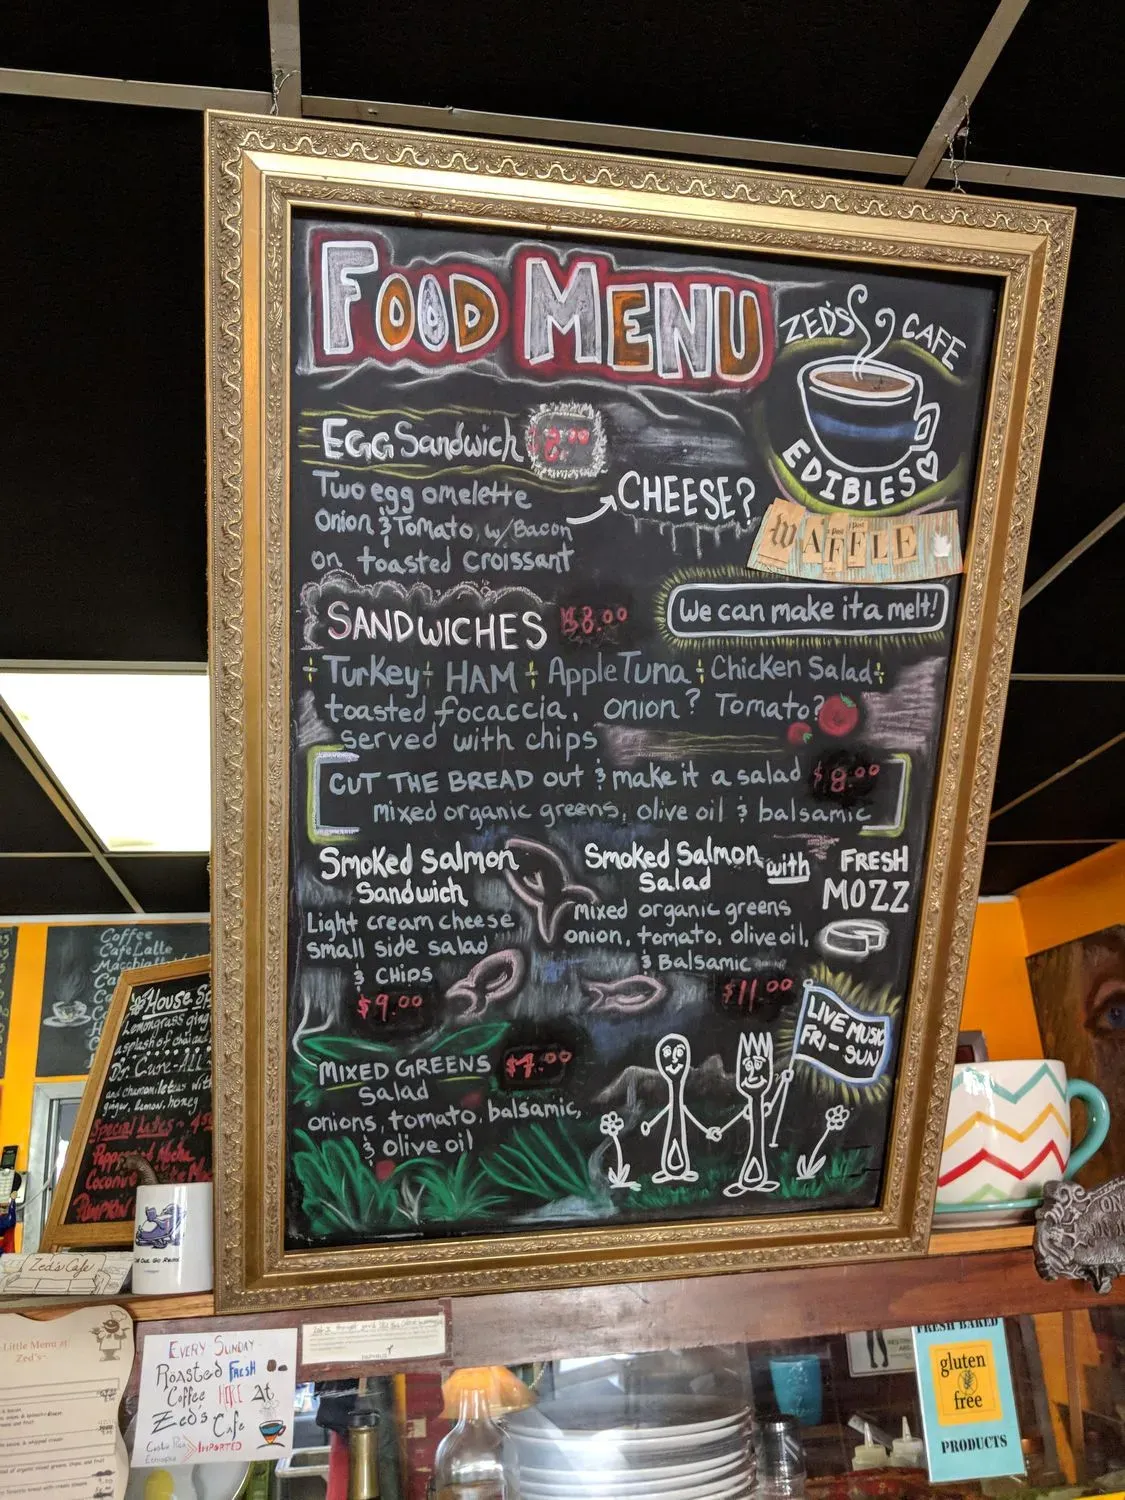 FOOD MENU
ZED'S CAFE
EDIBLES
EGG Sandwich
Two egg omelette
Onion & Tomato, w/Bacon
on toasted Croissant
CHEESE?
WAFFLE
We can make it a melt!
SANDWICHES $8.00
Turkey + HAM + Apple Tuna + Chicken Salad +
toasted focaccia, onion? Tomato?
served with chips
CUT THE BREAD out & make it a salad $8.00
mixed organic greens, olive oil & balsamic
Smoked Salmon
Sandwich
Light cream cheese
small side salad
& CHIPS
$9.00
Smoked Salmon with
Salad
FRESH
MOZZ
mixed organic greens
onion, tomato, olive oil,
& Balsamic
$11.00
LIVE MUSIC
FRI - SUN
MIXED GREENS
Salad
onions, tomato, balsamic,
& olive oil
Coffee
Cafe Latte
House
Lemongrass
and chamomile
ginger, lemon, honey
Zed's Cafe
Little Menu at
Zed's
EVERY SUNDAY
Roasted FRESH
Coffee HERE At
Zed's Cafe
Costa Rica IMPORTED
Ethiopia
FRESH BAKED
gluten
free
PRODUCTS